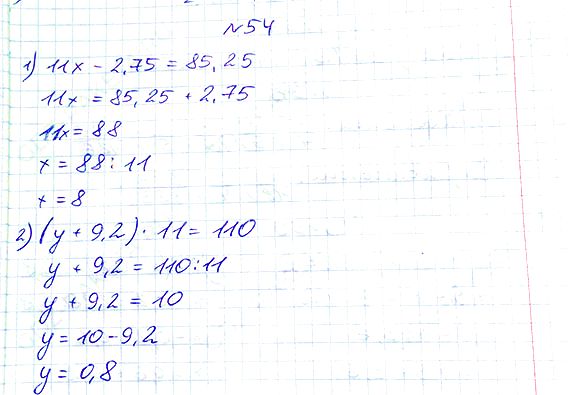 №54
1) 11x - 2,75 = 85,25
11x = 85,25 + 2,75
11x = 88
x = 88 : 11
x = 8
2) (y + 9,2) · 11 = 110
y + 9,2 = 110 : 11
y + 9,2 = 10
y = 10 - 9,2
y = 0,8